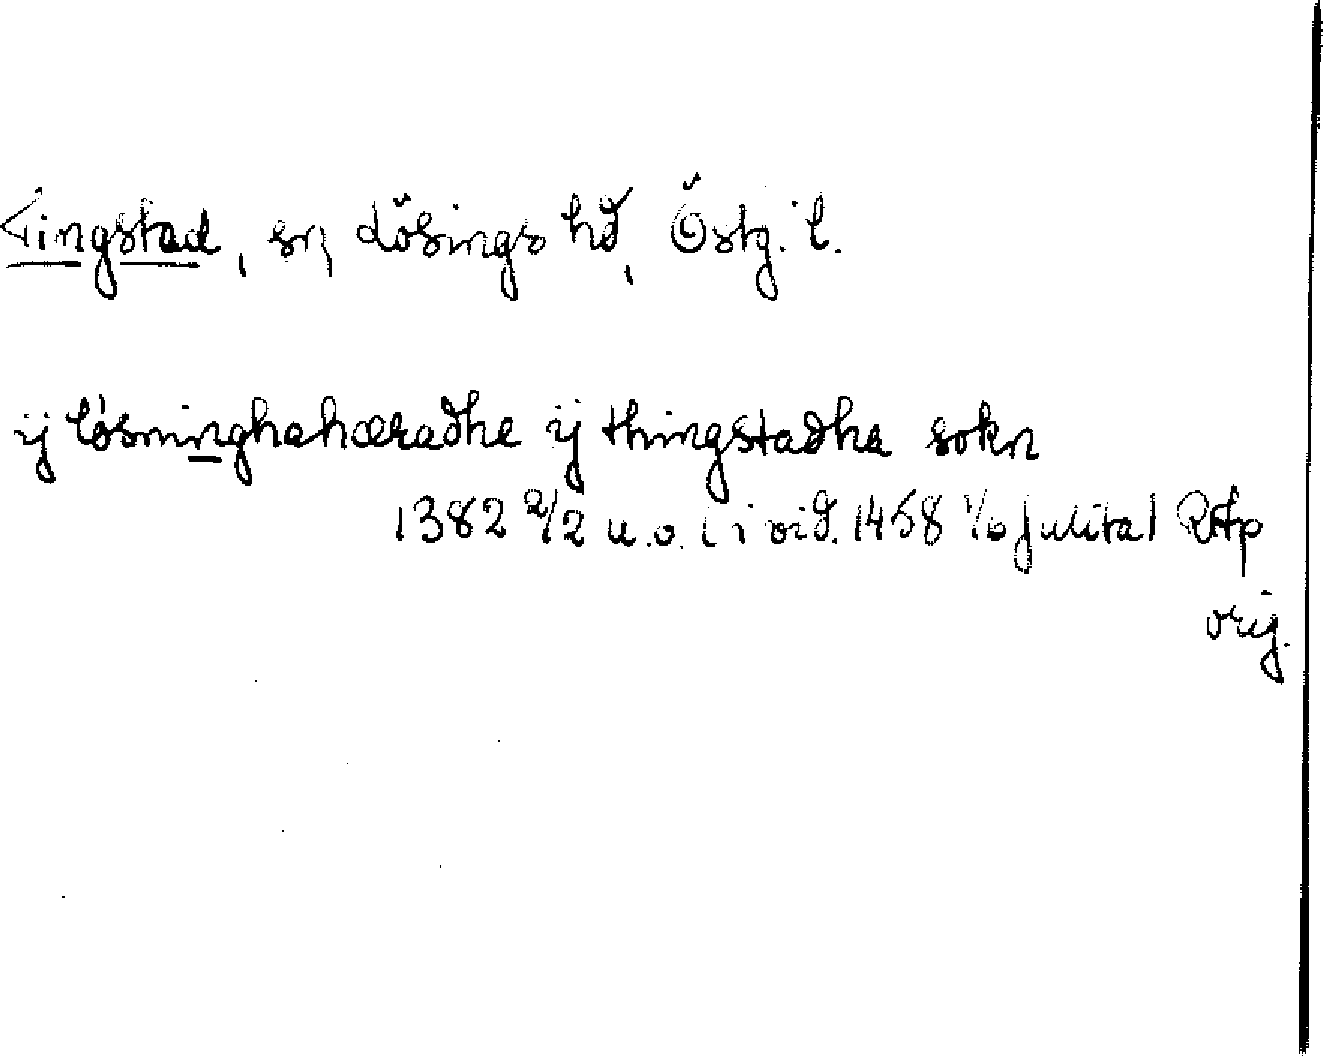 Tingstad, sn, Lösings hd, Östg. l.
ij løsninghahæradhe ij thingstadha sokn
1382 2/2 u.o. ( i vid. 1458 1/6 Julita) RAp
orig.